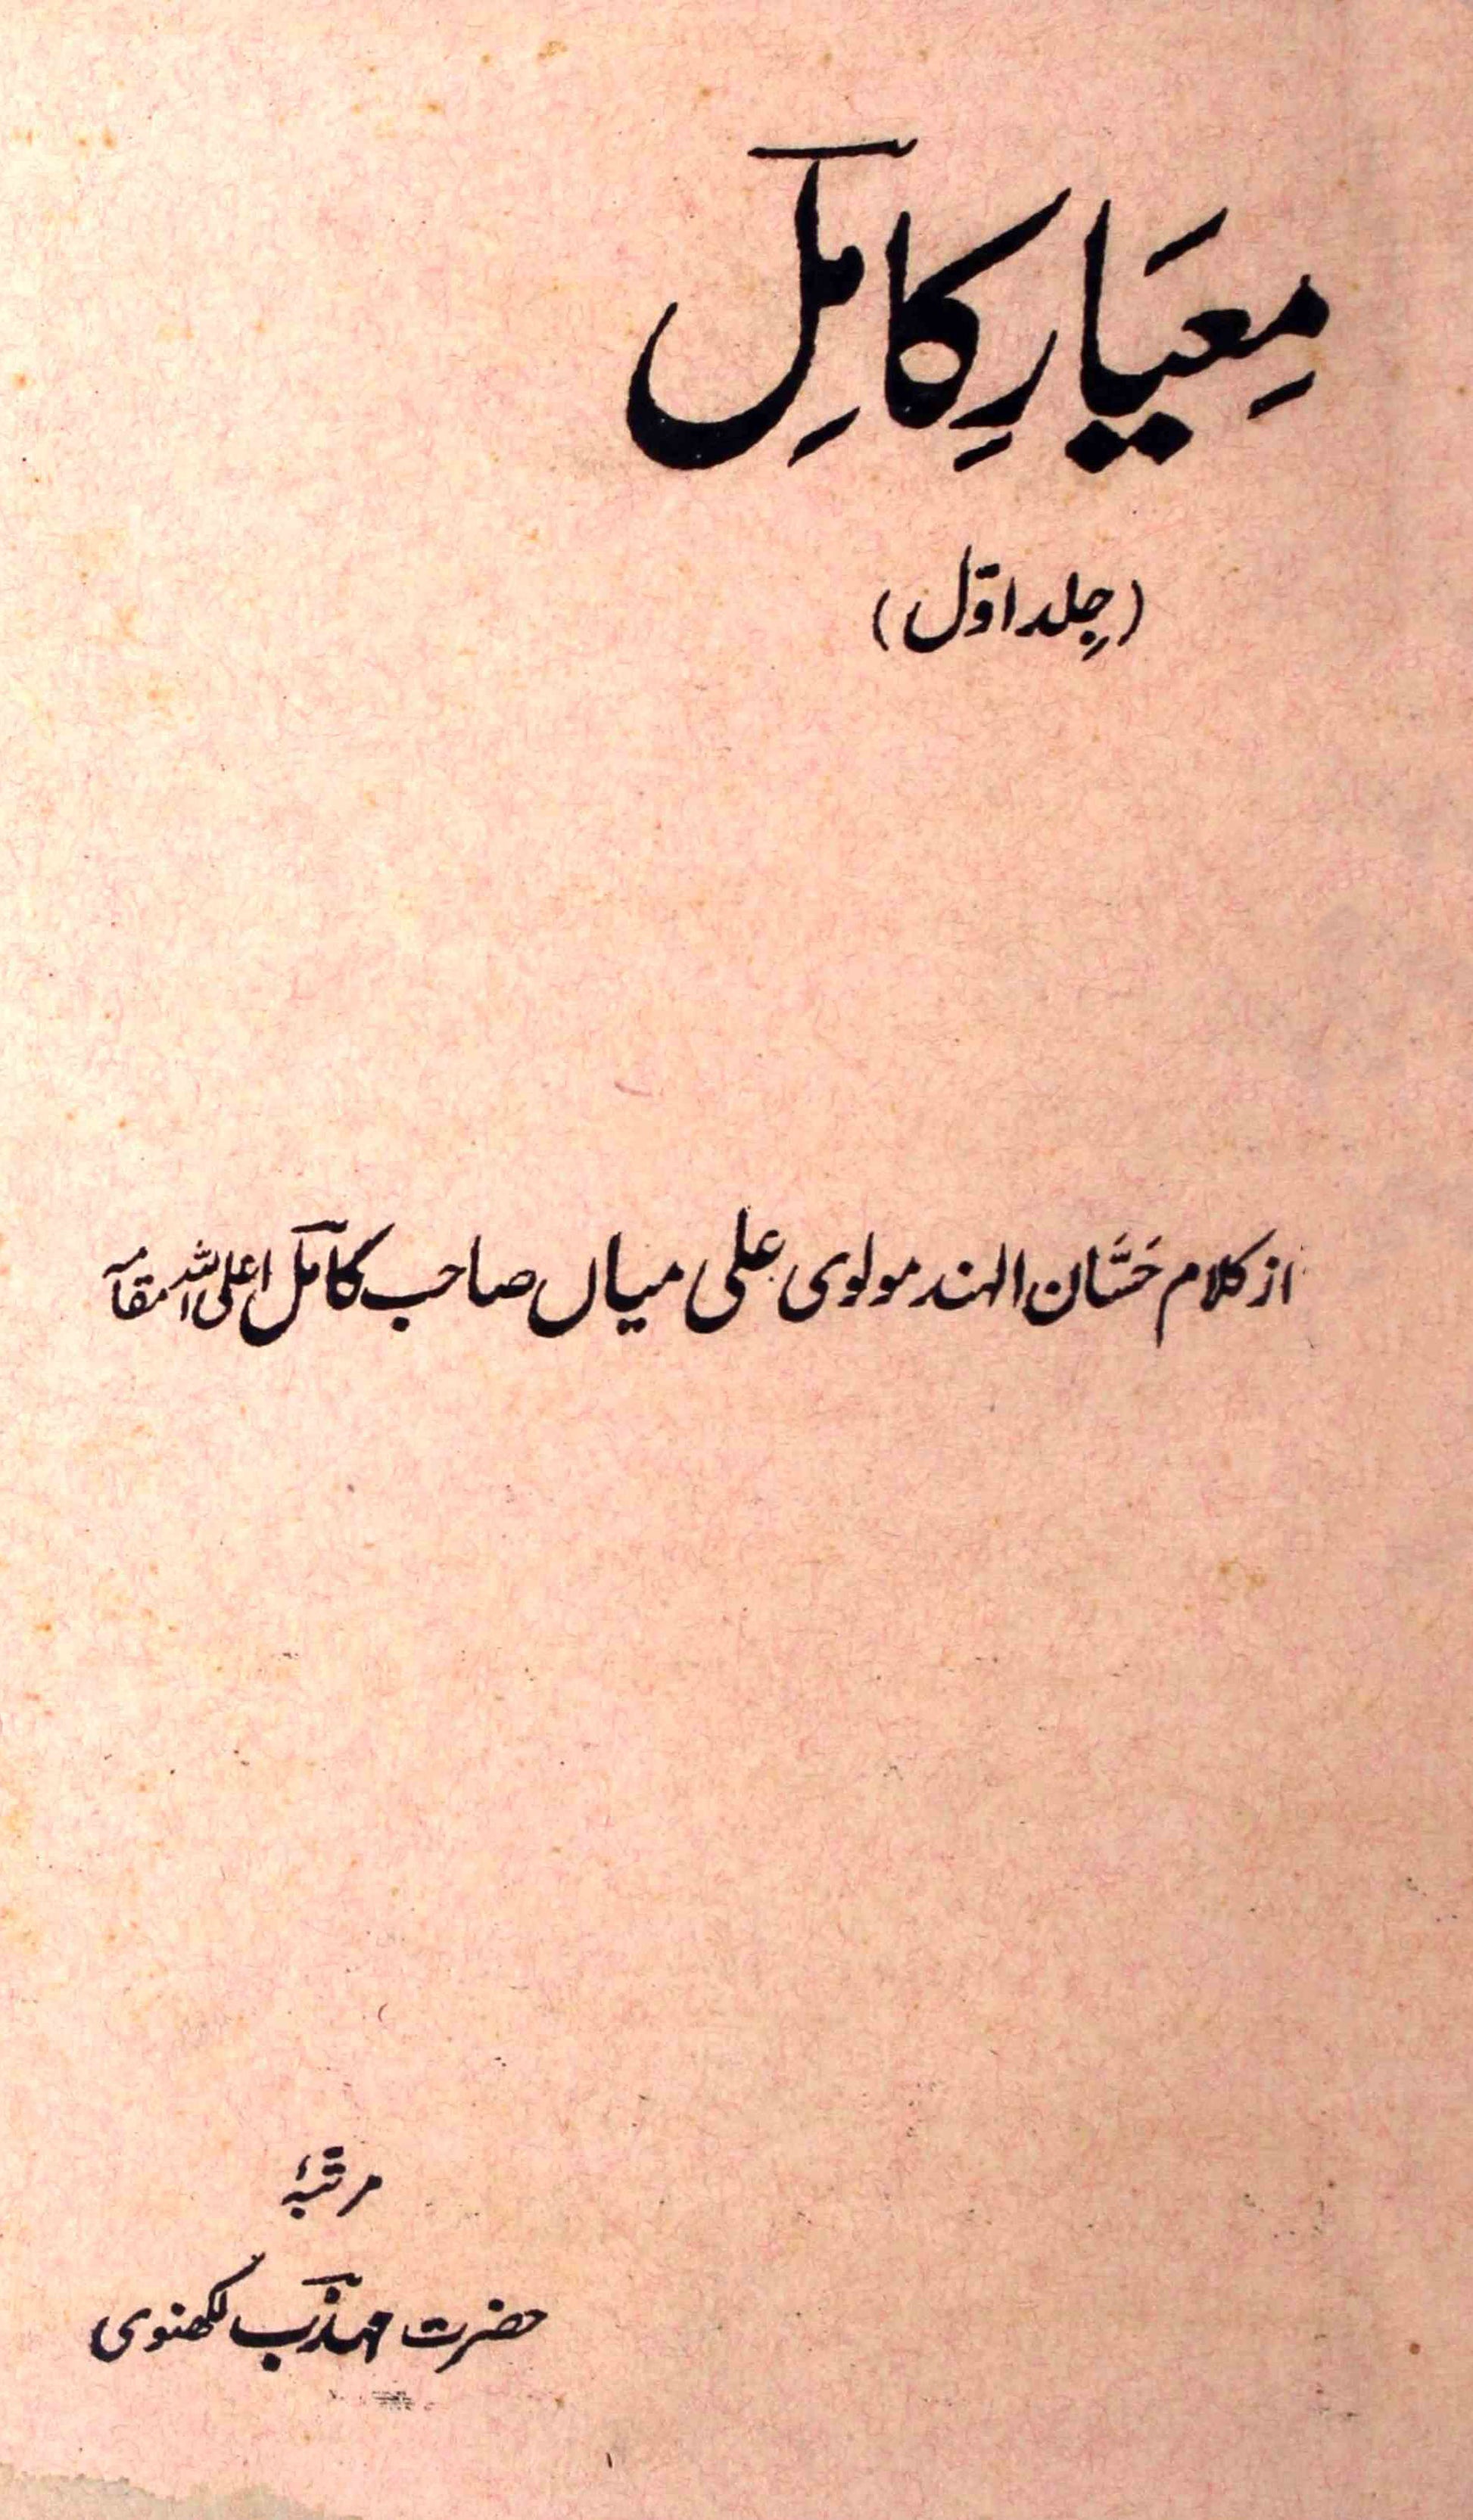 مِعیَارِ کامِل
(جِلد اوّل)
از کلام حَسَّان الہند مولوی علی میاں صاحب کامل اعلی اللہ مقامہ
مرتّبۂ
حضرت مہذب لکھنوی